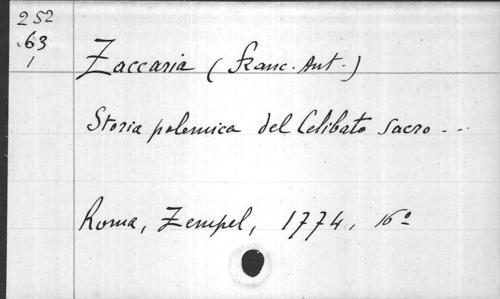 252
.63
1
Zaccaria (Franc. Ant.)
Storia polemica del Celibato Sacro...
Roma, Zempel, 1774, 16º